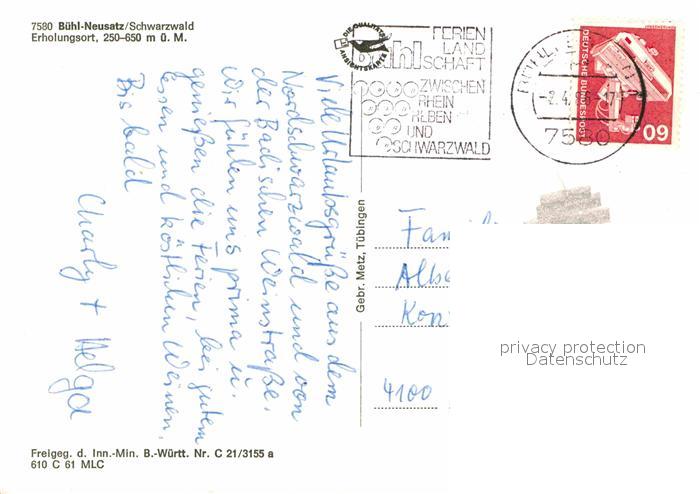 7580 Bühl-Neusatz/Schwarzwald
Erholungsort, 250-650 m ü. M.
DIE QUALITÄTS
ANSICHTSKARTE
FERIEN
LAND
SCHAFT
ZWISCHEN
RHEIN
REBEN
UND
SCHWARZWALD
7580
DEUTSCHE BUNDESPOST
60
Viele Urlaubsgrüße aus dem
Nordschwarzwald und von
der Badischen Weinstraße.
Wir fühlen uns prima u.
genießen die Ferien, bei gutem
Essen und köstlichen Weinen.
Bis bald
Charly + Helga
Gebr. Metz, Tübingen
Fam
Alb
Kon
4100
privacy protection
Datenschutz
Freigeg. d. Inn.-Min. B.-Württ. Nr. C 21/3155 a
610 C 61 MLC